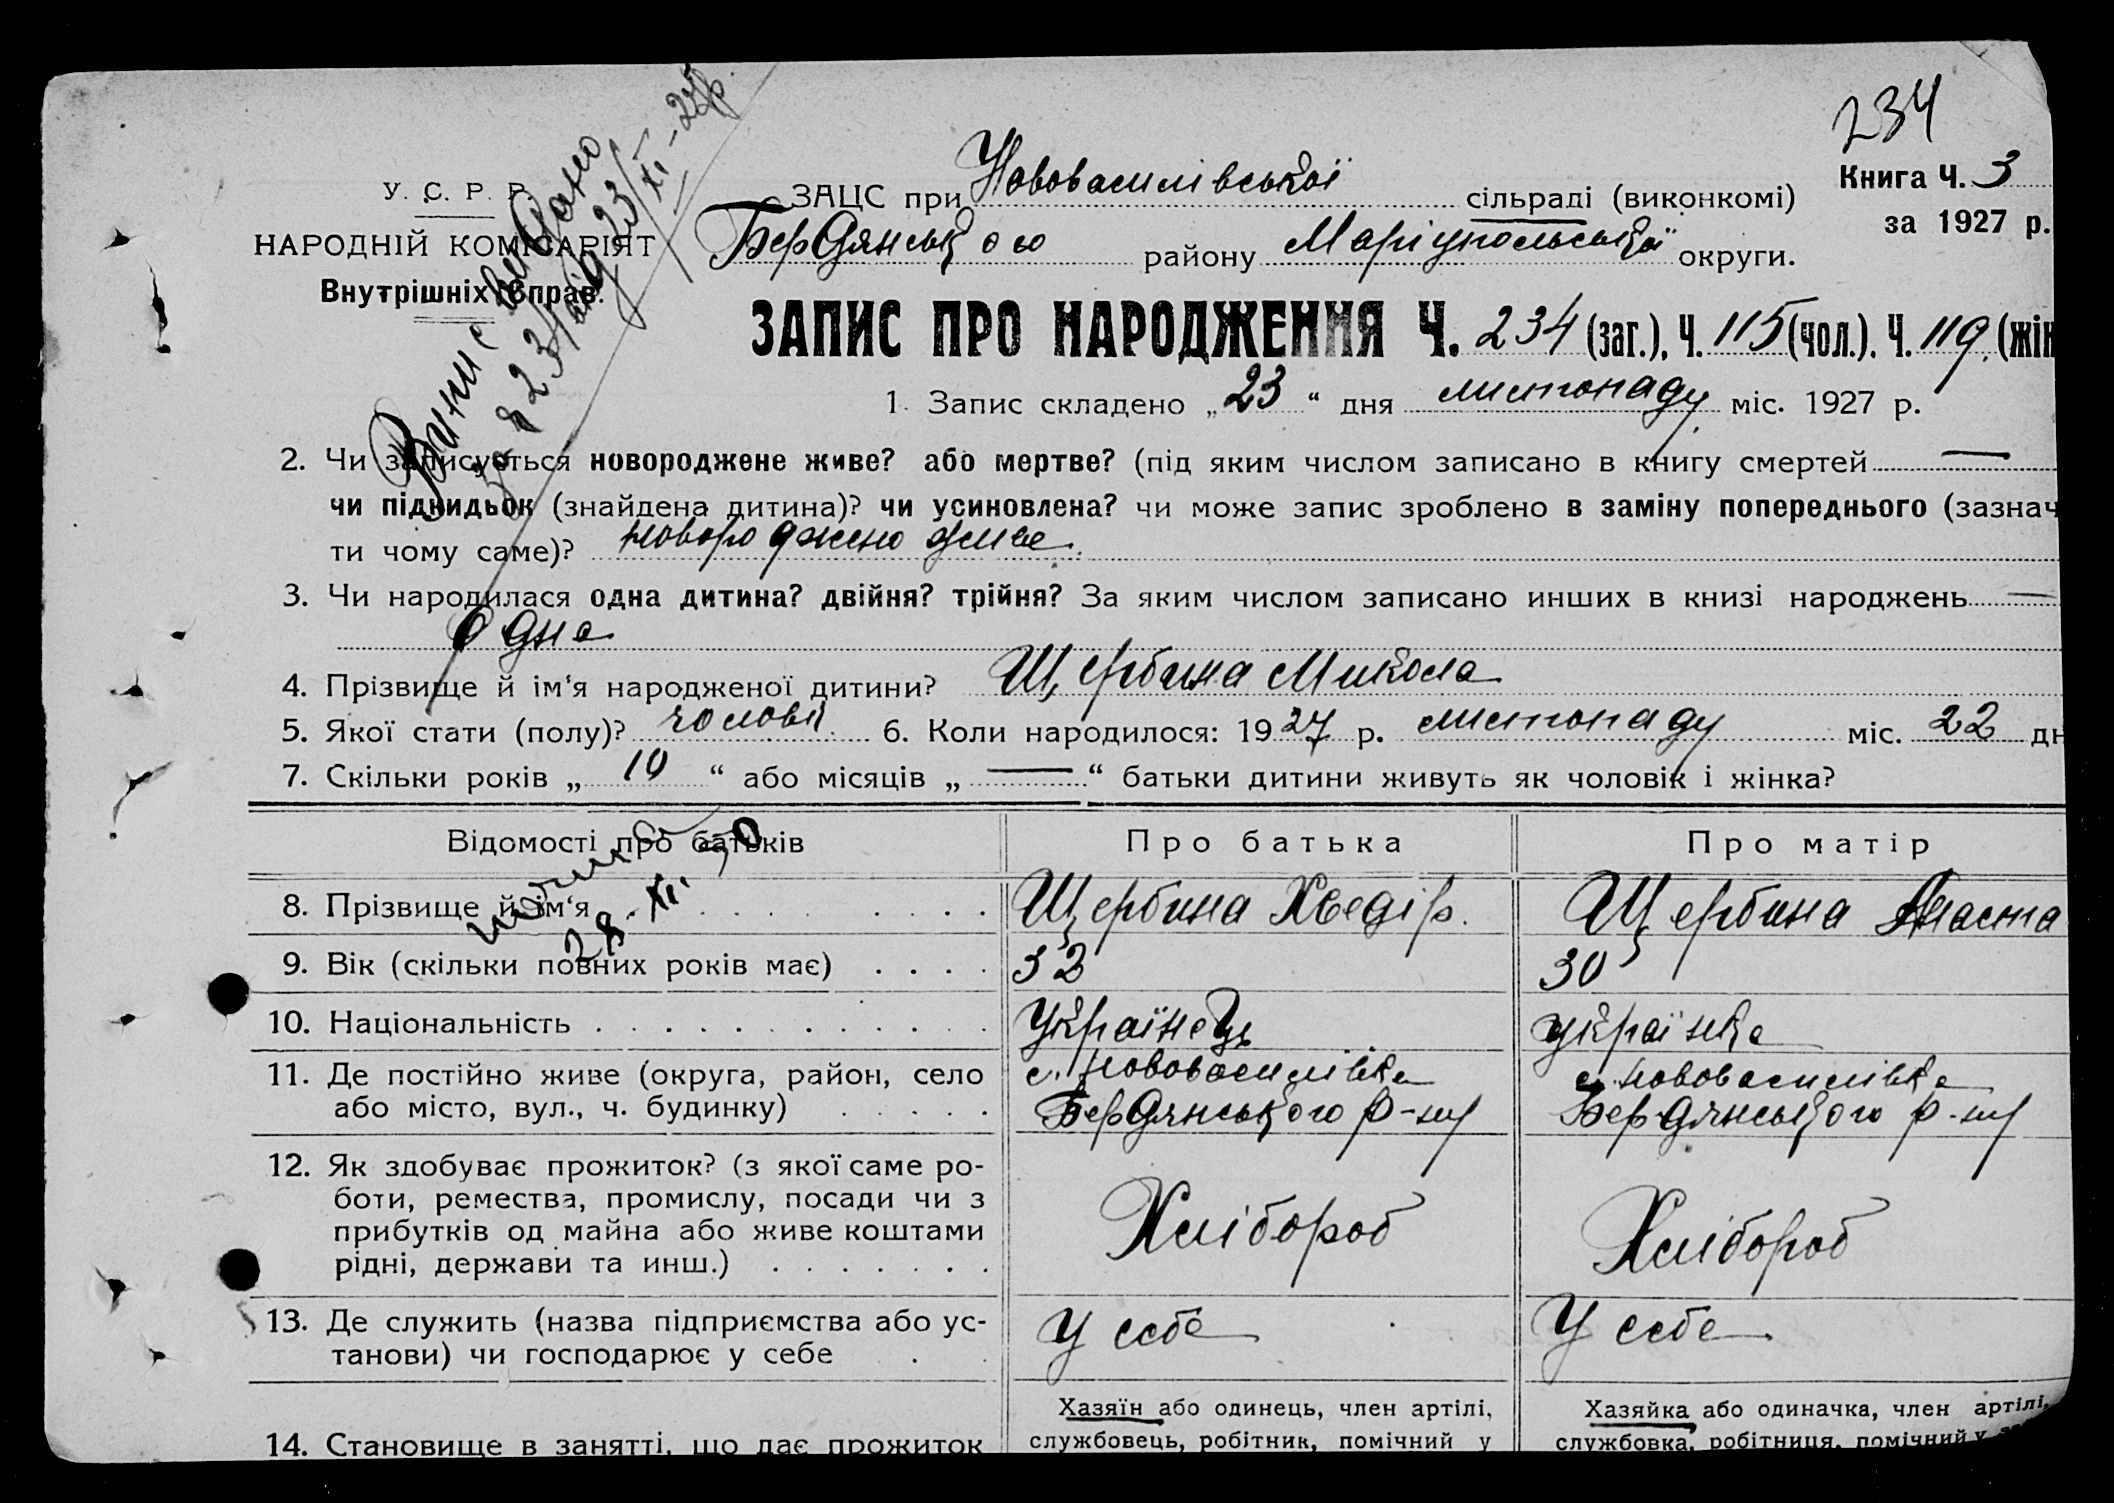 234
У. С. Р. Р.
НАРОДНІЙ КОМІСАРІЯТ
Внутрішніх Справ.
Випис видано
за № 23/ від 23/XI-27р.
ЗАЦС при Нововасилівської сільраді (виконкомі)
Бердянського району Маріупольської округи.
Книга Ч. 3
за 1927 р.
ЗАПИС ПРО НАРОДЖЕННЯ Ч. 234 (заг.), Ч. 115 (чол.), Ч. 119. (жін
1. Запис складено „23“ дня листопаду міс. 1927 р.
2. Чи записується новороджене живе? або мертве? (під яким числом записано в книгу смертей —
чи підкидьок (знайдена дитина)? чи усиновлена? чи може запис зроблено в заміну попереднього (зазнач
ти чому саме)? новороджено живе.
3. Чи народилася одна дитина? двійня? трійня? За яким числом записано инших в книзі народжень —
одна
4. Прізвище й ім‘я народженої дитини? Щербина Микола
5. Якої стати (полу)? чоловіч. 6. Коли народилося: 1927 р. листопаду міс. 22 дн
7. Скільки років „ 10 “ або місяців „ — “ батьки дитини живуть як чоловік і жінка?
Відомості про батьків Про батька Про матір
28.XII.50
8. Прізвище й ім‘я Щербина Хведір. Щербина Настя
9. Вік (скільки повних років має) 32 30
10. Національність Українець українка
11. Де постійно живе (округа, район, село с. Нововасилівка с. Нововасилівка
або місто, вул., ч. будинку) Бердянського р-ну Бердянського р-ну
12. Як здобуває прожиток? (з якої саме ро-
боти, ремества, промислу, посади чи з
прибутків од майна або живе коштами Хлібороб Хлібороб
рідні, держави та инш.)
13. Де служить (назва підприємства або ус- У себе У себе
танови) чи господарює у себе
Хазяїн або одинець, член артілі, Хазяйка або одиначка, член артілі,
14. Становище в занятті, що дає прожиток службовець, робітник, помічний у службовка, робітниця, помічний у